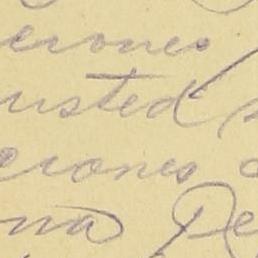 erones
usted
erones
na Pe